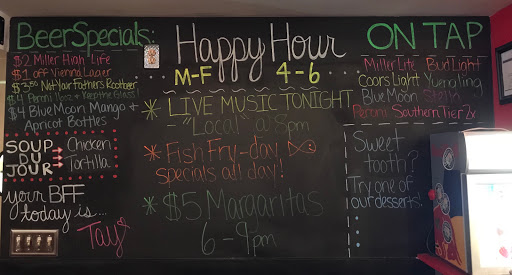 Beer Specials:
$2 Miller High Life
$1 off Vienna Lager
$3.50 Not Your Fathers Rootbeer
$4 Peroni 16oz + Keep the Glass!
$4 Blue Moon Mango +
Apricot Bottles
SOUP
DU
JOUR
Chicken
Tortilla
your BFF
today is...
Tay
Happy Hour
M-F 4-6
* LIVE MUSIC TONIGHT
- "Local" @ 8pm
* Fish Fry-day
specials all day!
* $5 Margaritas
6-9pm
ON TAP
Miller Lite Bud Light
Coors Light Yuengling
Blue Moon Stella
Peroni Southern Tier 2x
Sweet
tooth?
Try one of
our desserts!